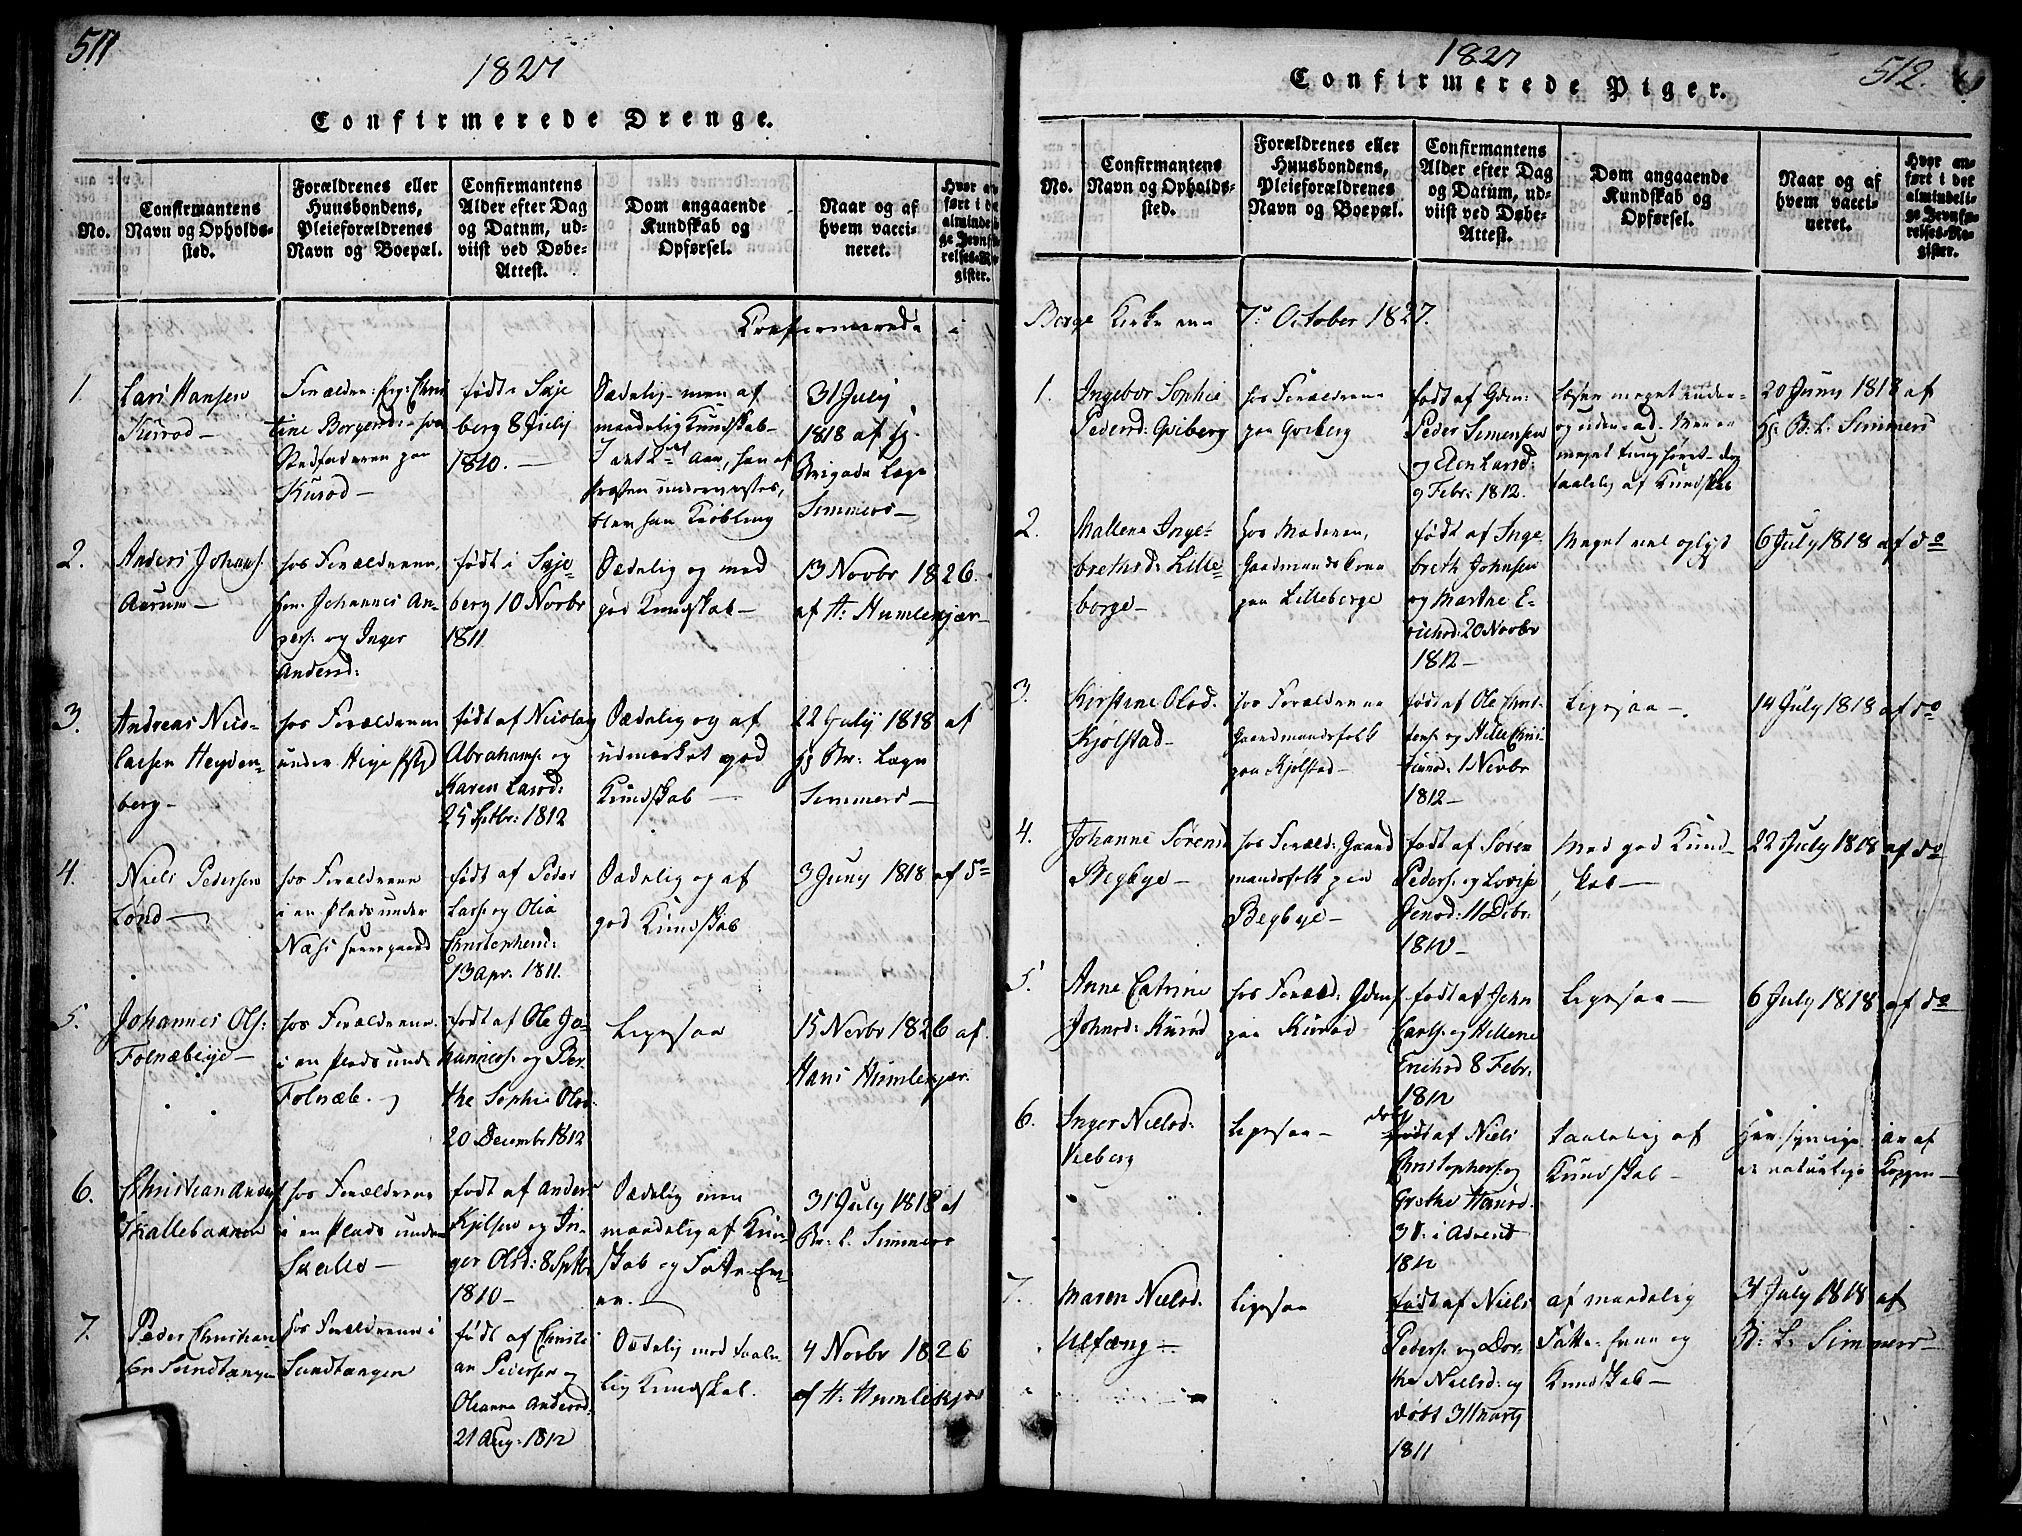 511
1827
Confirmerede Drenge.
No.
Confirmantens
Navn og Opholds-
sted.
Forældrenes eller
Huusbondens,
Pleieforældrenes
Navn og Boepæl.
Confirmantens
Alder efter Dag
og Datum, ud-
viist ved Døbe-
Attest.
Dom angaaende
Kundskab og
Opførsel.
Naar og af
hvem vacci-
neret.
Confirmerede i
1.
Lars Hansen
Kurod—
tine
Stedfaderen paa
Kurod—
født i Skje
berg 8 July
1810.—
Sædelig men af
maadelig Kundskab—
31 July
1818 af
Brigade Læge
Simmers—
2.
Anders Johans:
Aarum—
hos Forældrene,
Johannes An-
ders: og Inger
Andersd:
født i Skje-
berg 10 Novbr
1811
Sædelig og med
god Kundskab—
13 Novbr 1826.
af H: Humlekjær—
3.
Andreas Nico-
laisen Heyden-
berg—
hos Forældrene
under
født af Nicolay
Abrahams: og
Karen Larsd:
25 Septbr: 1812
Sædelig og af
udmærket god
Kundskab—
22 July 1818 af
Br: Læge
Simmers—
4.
Niels Pedersen
Lønd—
hos Forældrene
i en Plads under
Næs
født af Peder
Lars: og Olia
Christophersd:
13 Apr: 1811.
Sædelig og af
god Kundskab
3 Juny 1818 af do
5.
Johannes Ols:
hos Forældrene
i en Plads under
født af Ole Jo-
hannes: og Ber-
the Sophie Olsd:
20 Decembr 1812
Ligesaa
15 Novbr 1826 af
Hans Humlekjær.
6.
Christian Anders:
Skallebakken
hos Forældrene
i en Plads under
født af Anders
Kjelsen og In-
ger Olsd: 8 Septbr
1810—
Sædelig men
maadelig af Kund-
skab og Fatte-Ev-
ne.—
31 July 1818 af
Br: L. Simmers
7.
Peder Christian-
sen Sundtangen
hos Forældrene i
Sundtangen
født af Christi-
an Pedersen og
Oleanna Andersd:
21 Aug: 1812
Sædelig med taale-
lig Kundskab.
4 Novbr 1826
af H: Humlekjær
1827
512.
Confirmerede Piger.
No.
Confirmantens
Navn og Opholds-
sted.
Forældrenes eller
Huusbondens,
Pleieforældrenes
Navn og Boepæl.
Confirmantens
Alder efter Dag
og Datum, ud-
viist ved Døbe-
Attest.
Dom angaaende
Kundskab og
Opførsel.
Naar og af
hvem vacci-
neret.
Hvor an-
ført i det
almindeli-
ge Jevnfø-
relses-Re-
gister.
Borge Kirke den 7de October 1827.
1.
Ingebor Sophie
Pedersd: Goberg
hos Forældrene
paa Goberg
født af Gdm:
Peder Simensen
og Elen Larsd:
9 Febr: 1812.
og uden ad. Men er
meget tunghøret—dog
taalelig af Kundskab
20 Juny 1818 af
B. L. Simmers
2.
Mallene Inge-
brethsd: Lille-
borge—
hos Moderen,
Gaardmandskone
paa Lilleborge
født af Inge-
breth Johnsen
og Marthe E-
richsd: 20 Novbr
1812—
Meget vel oplyst
6 July 1818 af do
3.
Kirstine Olsd.
Kjølstad—
hos Forældrene
Gaardmandsfolk
paa Kjølstad—
født af Ole Chris-
tens: og Helle Chris-
tensd: 1 Novbr
1812—
Ligesaa—.
14 July 1818 af do
4.
Johanne Sørensd
Begbye—
hos Foræld: Gaard
mandsfolk paa
Begbye—
født af Søren
Peders: og Lovise
Jensd: 11 Decbr:
1812—
Med god Kund-
skab—
22 July 1818 af do
5.
Anne Catrine
Johnsd: Kurød
hos Foræld: Gdmf
paa Kurød
født af John
Carls: og Hellene
Erichsd 8 Febr:
1812
Ligesaa—
6 July 1818 af do
6.
Inger Nielsd:
Veeberg
Ligesaa—
døbt
født af Niels
Christophers: og
Grethe Hansd:
3 S: i Advent
1812
taalelig af
Kundskab—
Har synlige ar af
de naturlige Kopper—
7.
Maren Nielsd.
Ulfæng—
Ligesaa
født af Niels
Peders: og Dor-
the Nielsd: og
døbt 31 Marty
1811
af maadelig
Fatte-Evne og
Kundskab—
31 July 1818 af
B: L: Simmers—